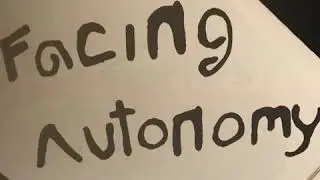 Facing
Autonomy